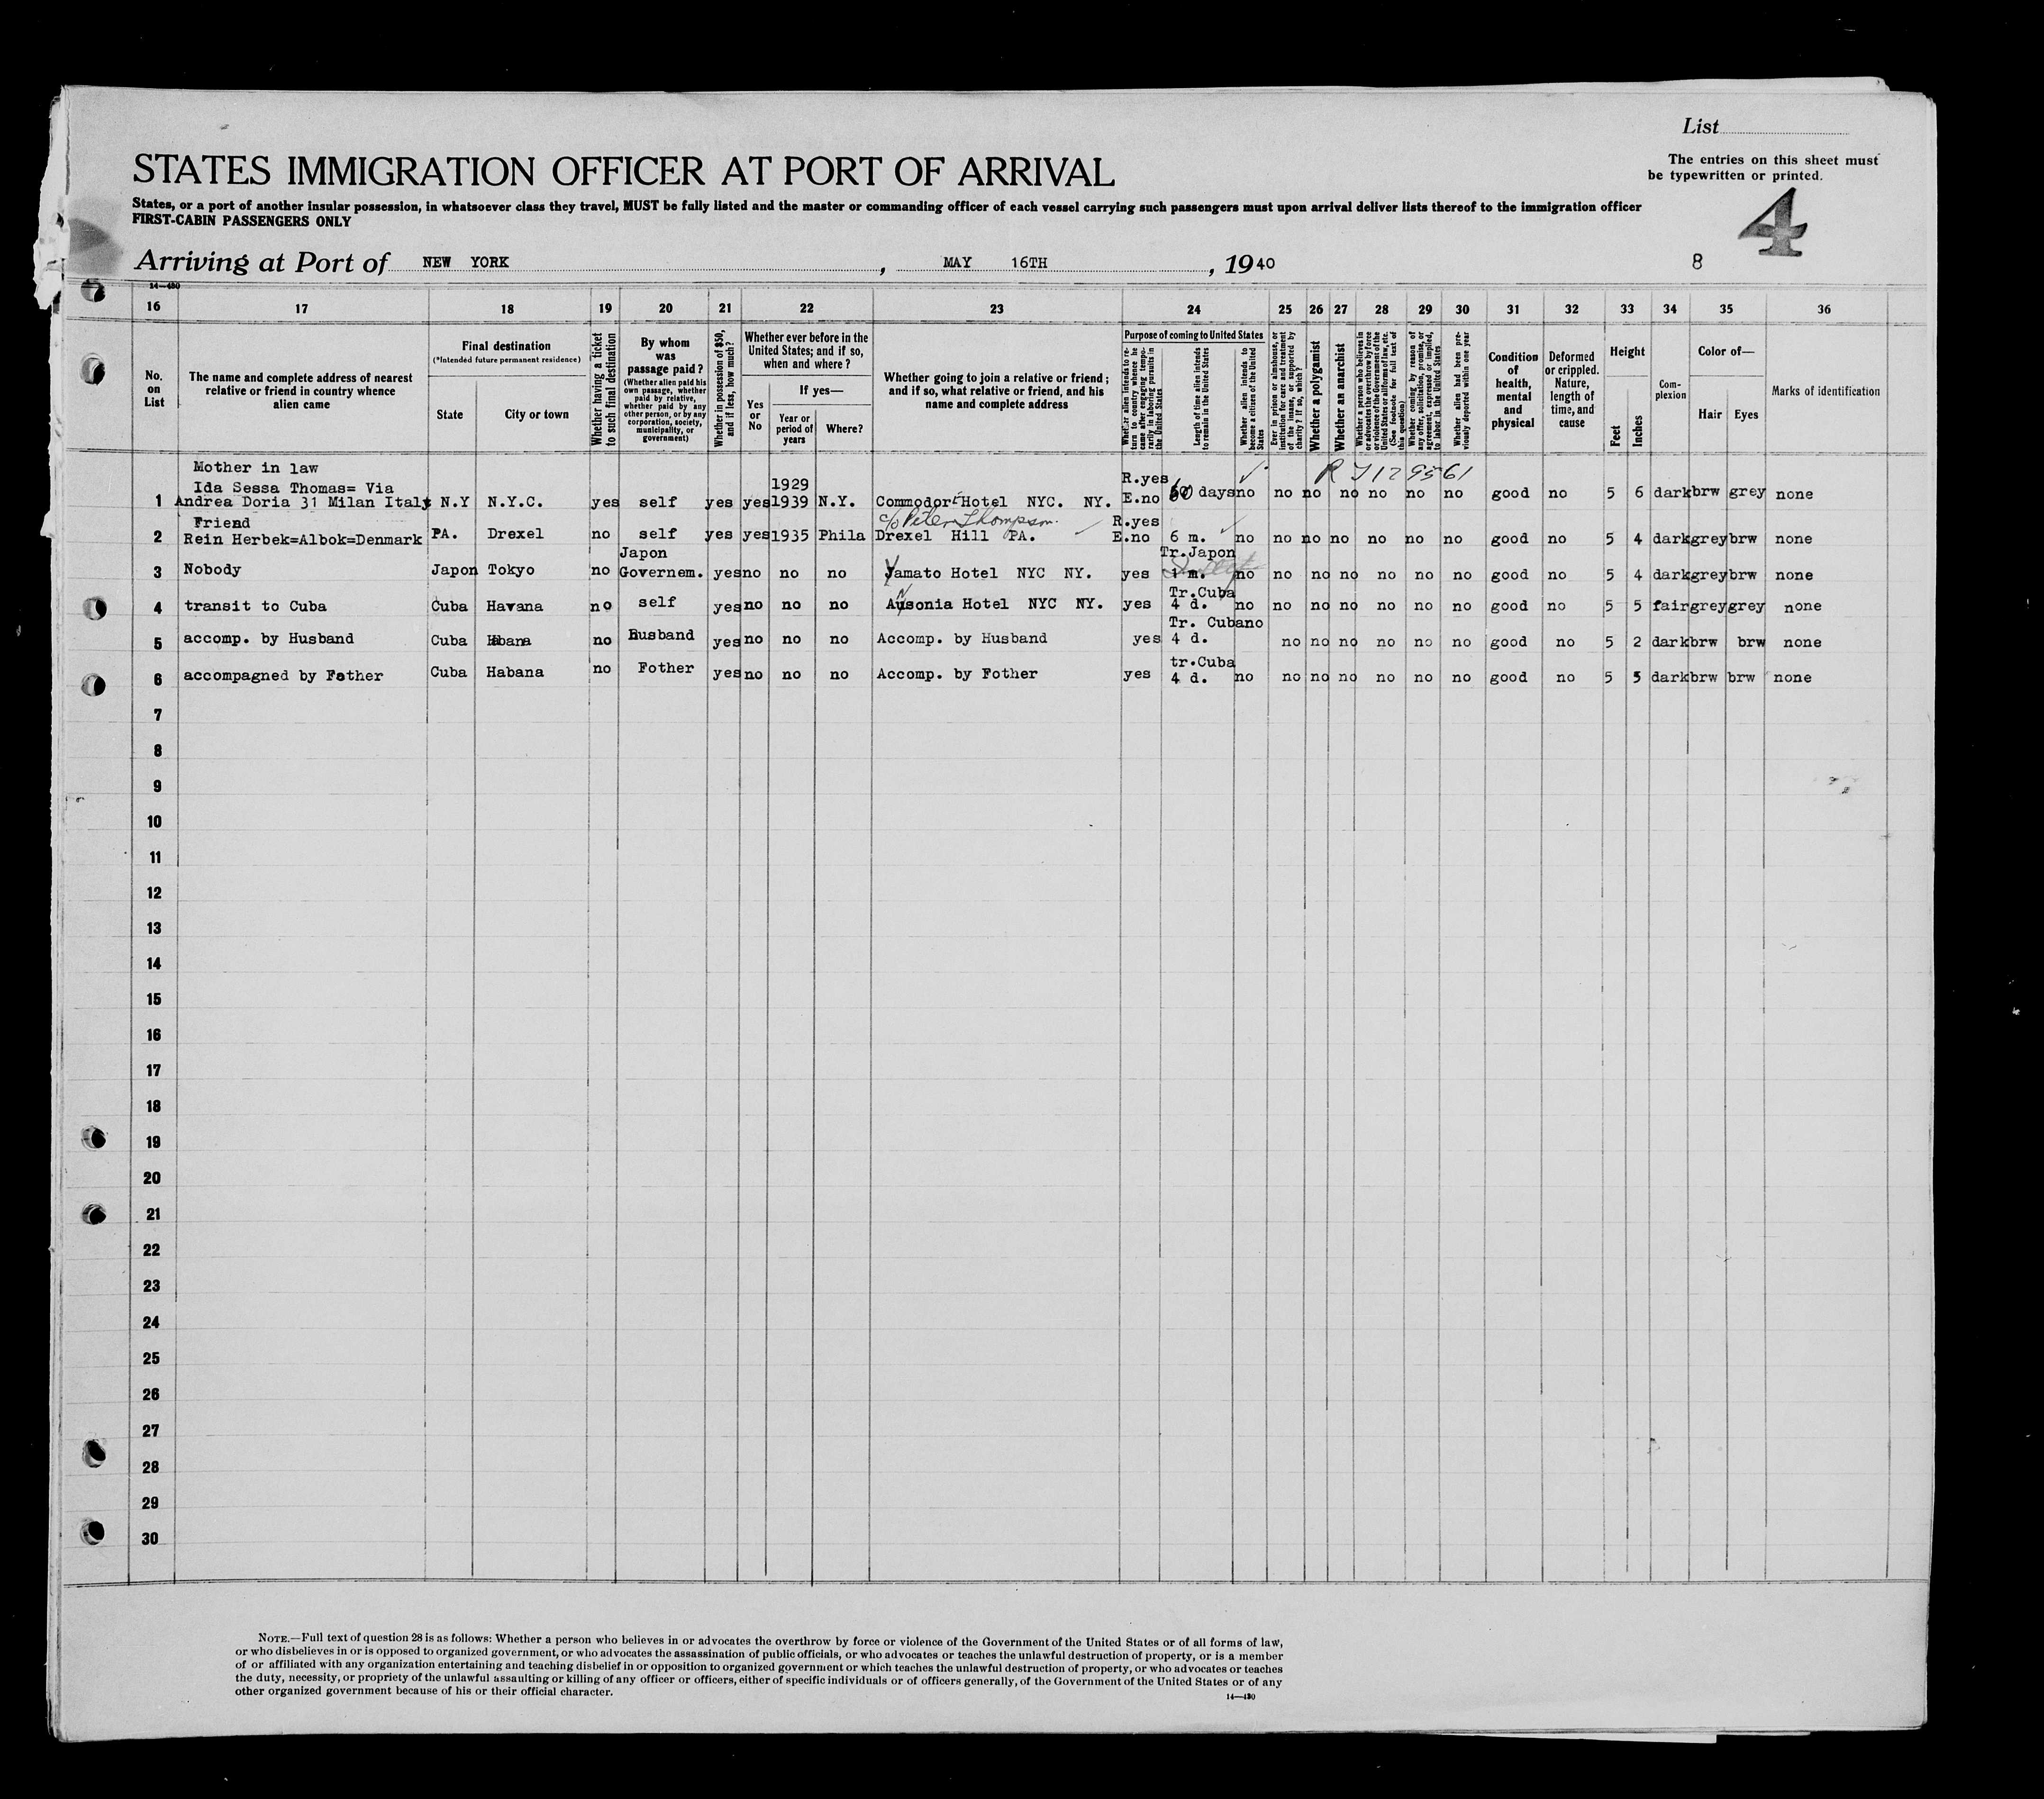 List
The entries on this sheet must
be typewritten or printed.
STATES IMMIGRATION OFFICER AT PORT OF ARRIVAL
4
States, or a port of another insular possession, in whatsoever class they travel, MUST be fully listed and the master or commanding officer of each vessel carrying such passengers must upon arrival deliver lists thereof to the immigration officer
FIRST-CABIN PASSENGERS ONLY
Arriving at Port of NEW YORK, MAY 16TH, 1940 8
14—430
16 17 18 19 20 21 22 23 24 25 26 27 28 29 30 31 32 33 34 35 36
No. on List
The name and complete address of nearest relative or friend in country whence alien came
Final destination
(*Intended future permanent residence)
State
City or town
Whether having a ticket to such final destination
By whom was passage paid?
(Whether alien paid his own passage, whether paid by relative, whether paid by any other person, or by any corporation, society, municipality, or government)
Whether in possession of $50, and if less, how much?
Whether ever before in the United States; and if so, when and where?
Yes or No
If yes—
Year or period of years
Where?
Whether going to join a relative or friend; and if so, what relative or friend, and his name and complete address
Purpose of coming to United States
Whether alien intends to return to country whence he came after engaging temporarily in laboring pursuits in the United States
Length of time alien intends to remain in the United States
Whether alien intends to become a citizen of the United States
Ever in prison or almshouse, or institution for care and treatment of the insane, or supported by charity? If so, which?
Whether a polygamist
Whether an anarchist
Whether a person who believes in or advocates the overthrow by force or violence of the Government of the United States or all forms of law, etc. (See footnote for full text of this question)
Whether coming by reason of any offer, solicitation, promise, or agreement, expressed or implied, to labor in the United States
Whether alien had been previously deported within one year
Condition of health, mental and physical
Deformed or crippled. Nature, length of time, and cause
Height
Feet
Inches
Complexion
Color of—
Hair
Eyes
Marks of identification
Mother in law
Ida Sessa Thomas= Via 1929 R.yes R J129561
1 Andrea Doria 31 Milan Italy N.Y N.Y.C. yes self yes yes 1939 N.Y. Commodore Hotel NYC. NY. E.no 60 days no no no no no no no good no 5 6 dark brw grey none
Friend c/o Peter Thompson. R.yes
2 Rein Herbek=Albok=Denmark PA. Drexel no self yes yes 1935 Phila Drexel Hill PA. E.no 6 m. no no no no no no no good no 5 4 dark grey brw none
Japon Tr.Japon
3 Nobody Japon Tokyo no Governem. yes no no no Yamato Hotel NYC NY. yes 1 m. no no no no no no no good no 5 4 dark grey brw none
Tr.Cuba
4 transit to Cuba Cuba Havana no self yes no no no Ansonia Hotel NYC NY. yes 4 d. no no no no no no no good no 5 5 fair grey grey none
Tr. Cubano
5 accomp. by Husband Cuba Habana no Husband yes no no no Accomp. by Husband yes 4 d. no no no no no no good no 5 2 dark brw brw none
tr.Cuba
6 accompagned by Father Cuba Habana no Fother yes no no no Accomp. by Fother yes 4 d. no no no no no no no good no 5 5 dark brw brw none
7
8
9
10
11
12
13
14
15
16
17
18
19
20
21
22
23
24
25
26
27
28
29
30
NOTE.—Full text of question 28 is as follows: Whether a person who believes in or advocates the overthrow by force or violence of the Government of the United States or of all forms of law,
or who disbelieves in or is opposed to organized government, or who advocates the assassination of public officials, or who advocates or teaches the unlawful destruction of property, or is a member
of or affiliated with any organization entertaining and teaching disbelief in or opposition to organized government or which teaches the unlawful destruction of property, or who advocates or teaches
the duty, necessity, or propriety of the unlawful assaulting or killing of any officer or officers, either of specific individuals or of officers generally, of the Government of the United States or of any
other organized government because of his or their official character.
14—430